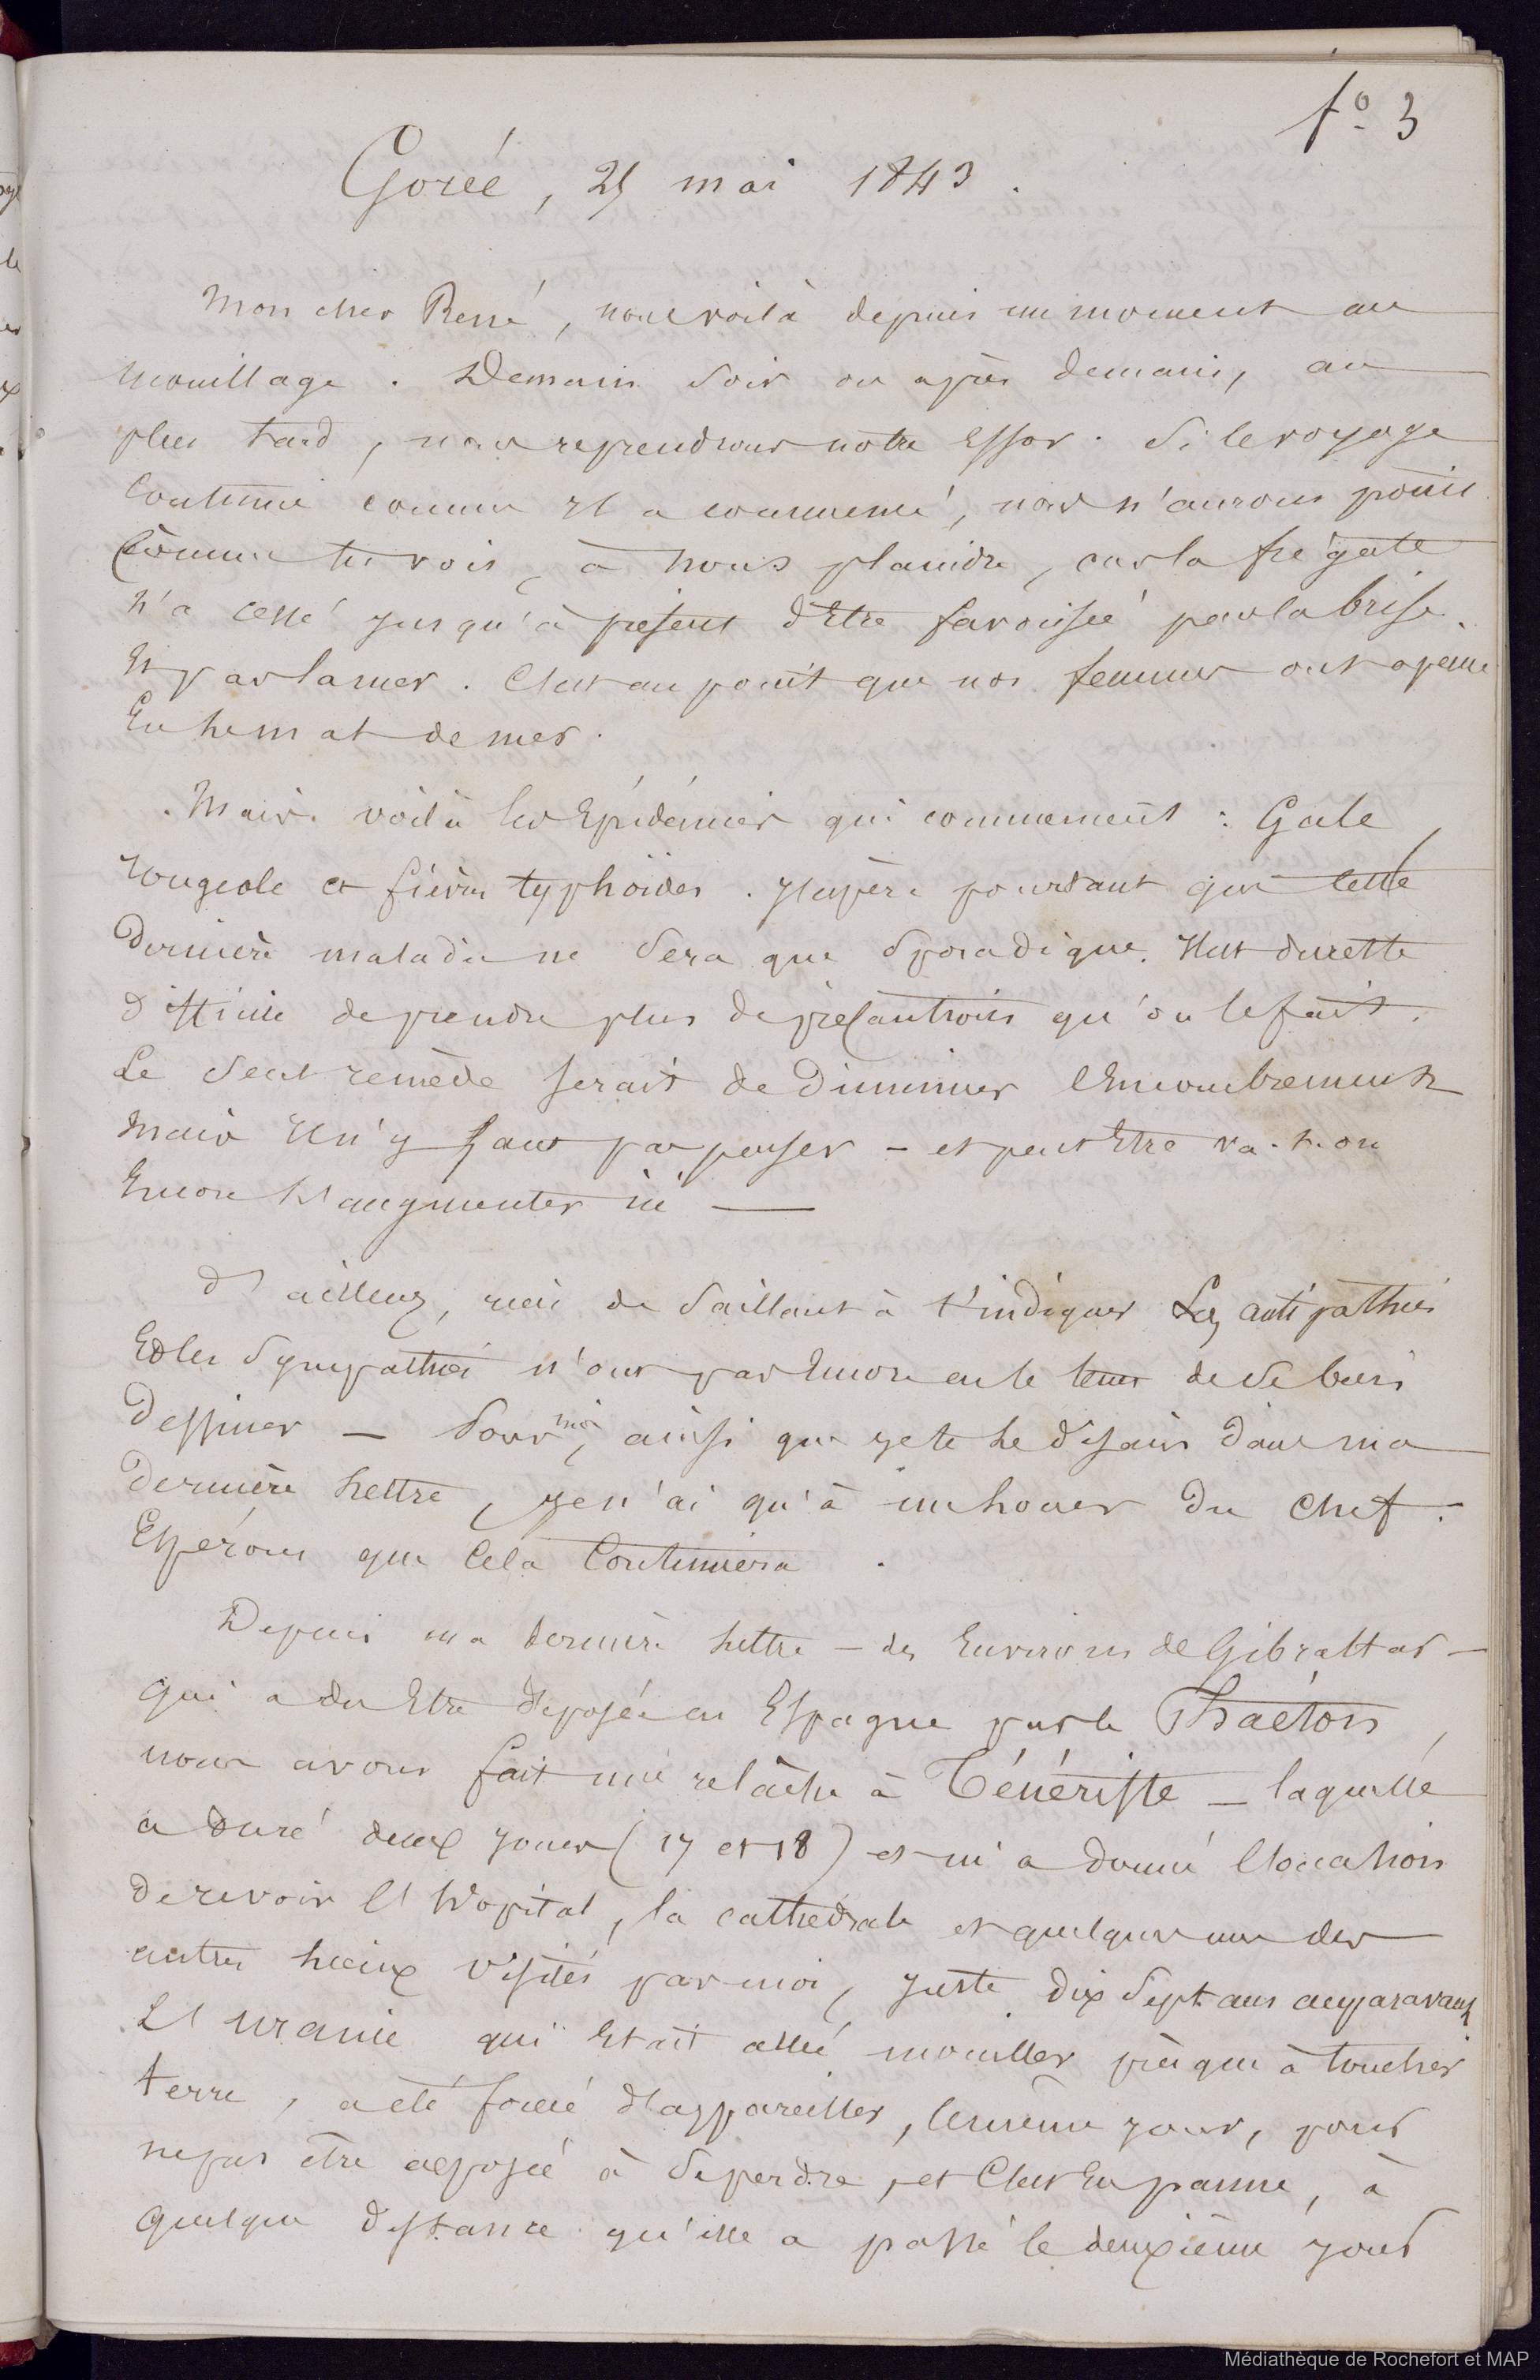 fo. 3
Gorée, 25 mai 1843.
Mon cher René, nous voilà depuis un moment au
mouillage. Demain soir ou après demain, au
plus tard, nous reprendrons notre essor. Si le voyage
continue comme il a commencé, nous n'aurons point
comme tu vois, à nous plaindre, car la frégate
n'a cessé jusqu'à présent d'être favorisée par la brise
et par la mer. C'est au point que nos femmes ont à peine
eu le mal de mer.
Mais voilà les épidémies qui commencent : Gale,
rougeole et fièvres typhoïdes. J'espère pourtant que cette
dernière maladie ne sera que sporadique. Il est du reste
difficile de prendre plus de précautions qu'on le fait.
Le seul remède serait de diminuer l'encombrement
mais il n'y faut pas penser - et peut être va-t-on
encore l'augmenter ici —
D'ailleurs, rien de saillant à t'indiquer Les antipathies
et les sympathies n'ont pas encore eu le tems de se bien
dessiner — Pour moi, ainsi que je te le disais dans ma
dernière lettre, je n'ai qu'à me louer du chef.
Espérons que cela continuera.
Depuis ma dernière lettre — des environs de Gibraltar —
qui a du être déposée en Espagne par le Phaéton,
nous avons fait une relâche à Ténériffe — laquelle
a duré deux jours (17 et 18) et m'a donné l'occasion
de revoir l'hôpital, la cathédrale et quelques uns des
autres lieux visités par moi, juste dix sept ans auparavant
L'Uranie qui était allé mouiller presque à toucher
terre, a été forcé d'appareiller, le même jour, pour
ne pas être exposée à se perdre, et c'est en panne, à
quelque distance qu'elle a passé le deuxième jour
Médiathèque de Rochefort et MAP